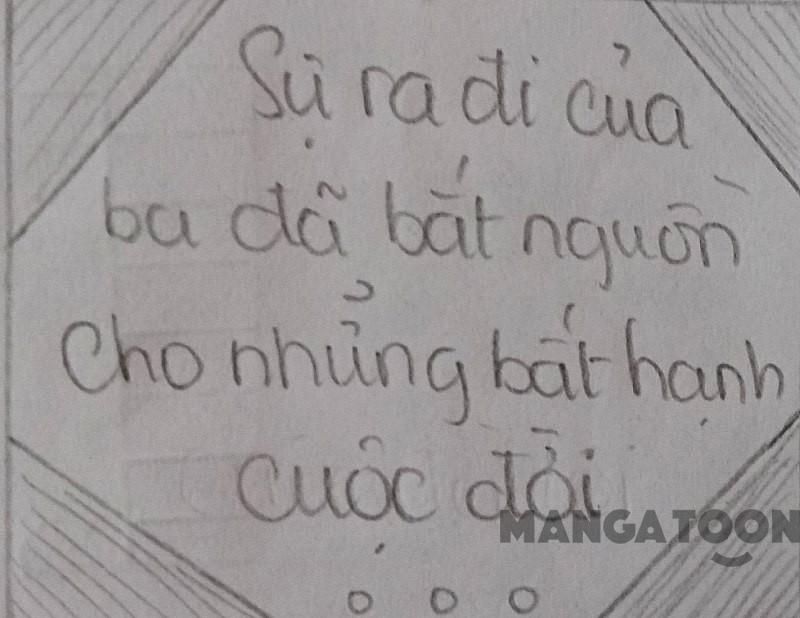 Sự ra đi của
ba đã bắt nguồn
cho nhửng bất hạnh
cuộc đời
...
MANGATOON